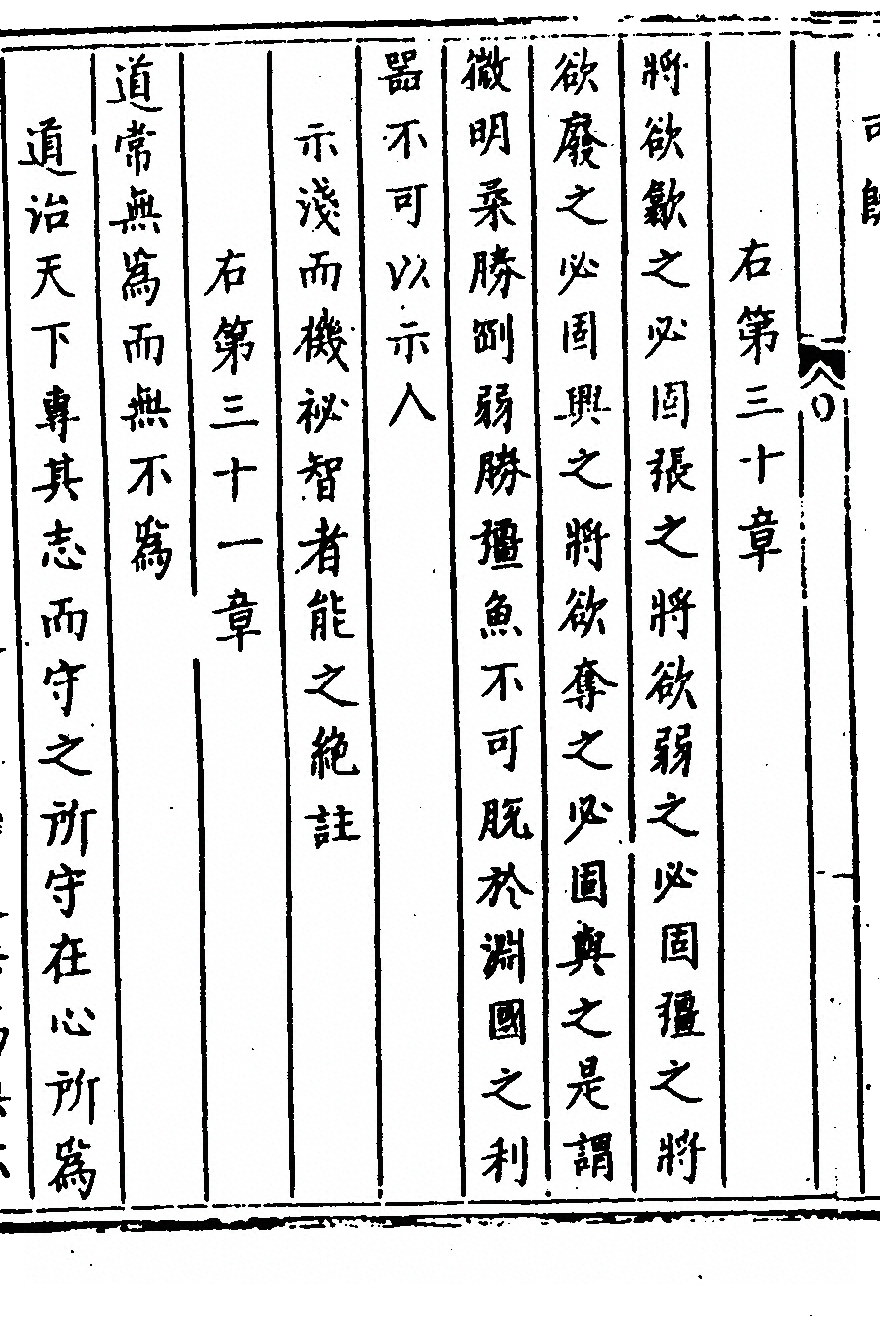 右第三十章
將欲歙之必固張之將欲弱之必固彊之將
欲廢之必固興之將欲奪之必固與之是謂
微明柔勝剛弱勝彊魚不可脫於淵國之利
器不可以示人
示淺而機祕智者能之絶註
右第三十一章
道常無為而無不為
道治天下專其志而守之所守在心所為